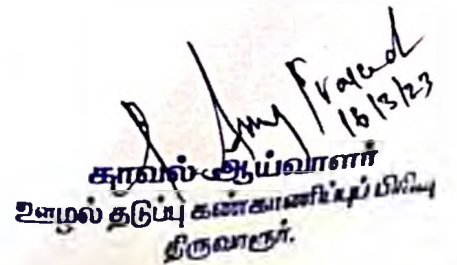 Prasad
16/3/23
காவல் ஆய்வாளர்
ஊழல் தடுப்பு கண்காணிப்புப் பிரிவு
திருவாரூர்.